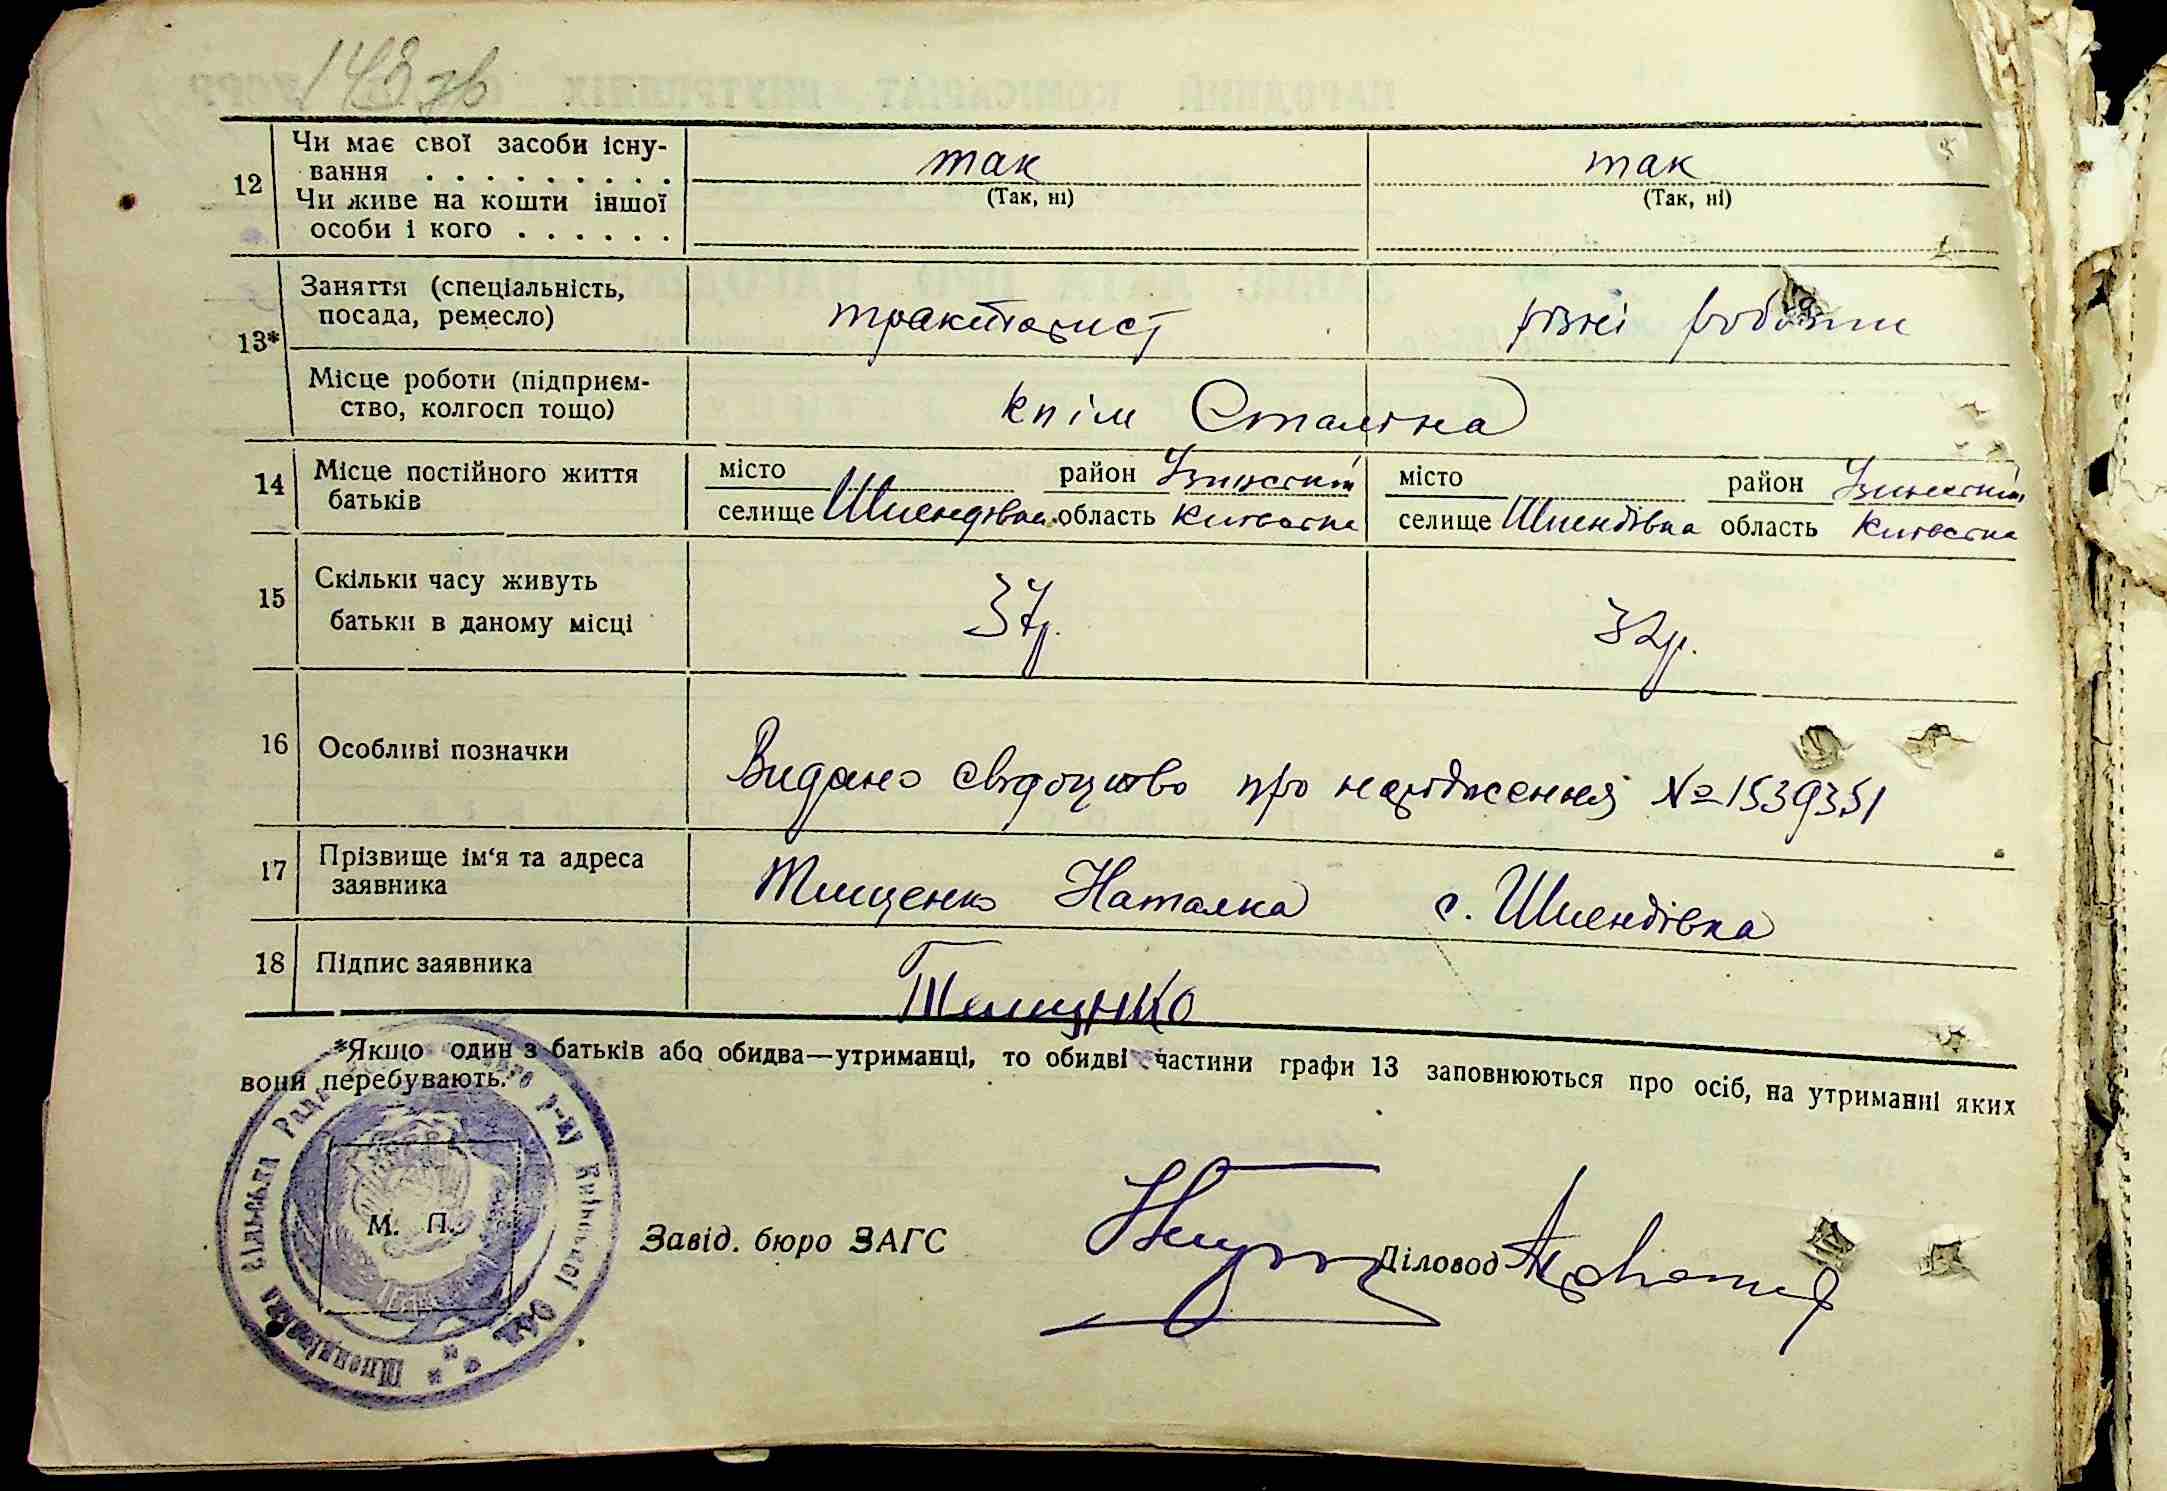 148 зв
12 Чи має свої засоби існу-
вання . . . . . . . . . так так
(Так, ні) (Так, ні)
Чи живе на кошти іншої
особи і кого . . . . . .
13* Заняття (спеціальність,
посада, ремесло) тракторист різні роботи
Місце роботи (підприєм-
ство, колгосп тощо) к п ім Сталіна
14 Місце постійного життя
батьків
місто район Узинський місто район Узинський
селище Шпендівка область Київська селище Шпендівка область Київська
15 Скільки часу живуть
батьки в даному місці 37р. 32р.
16 Особливі позначки Видано свідоцтво про народження № 1539351
17 Прізвище ім‘я та адреса
заявника Тищенко Наталка с. Шпендівка
18 Підпис заявника
*Якщо один з батьків або обидва—утриманці, то обидві частини графи 13 заповнюються про осіб, на утриманні яких
вони перебувають.
Шпендівська сільська Рада р-ну Київської обл.
М. П.
Завід. бюро ЗАГС Діловод